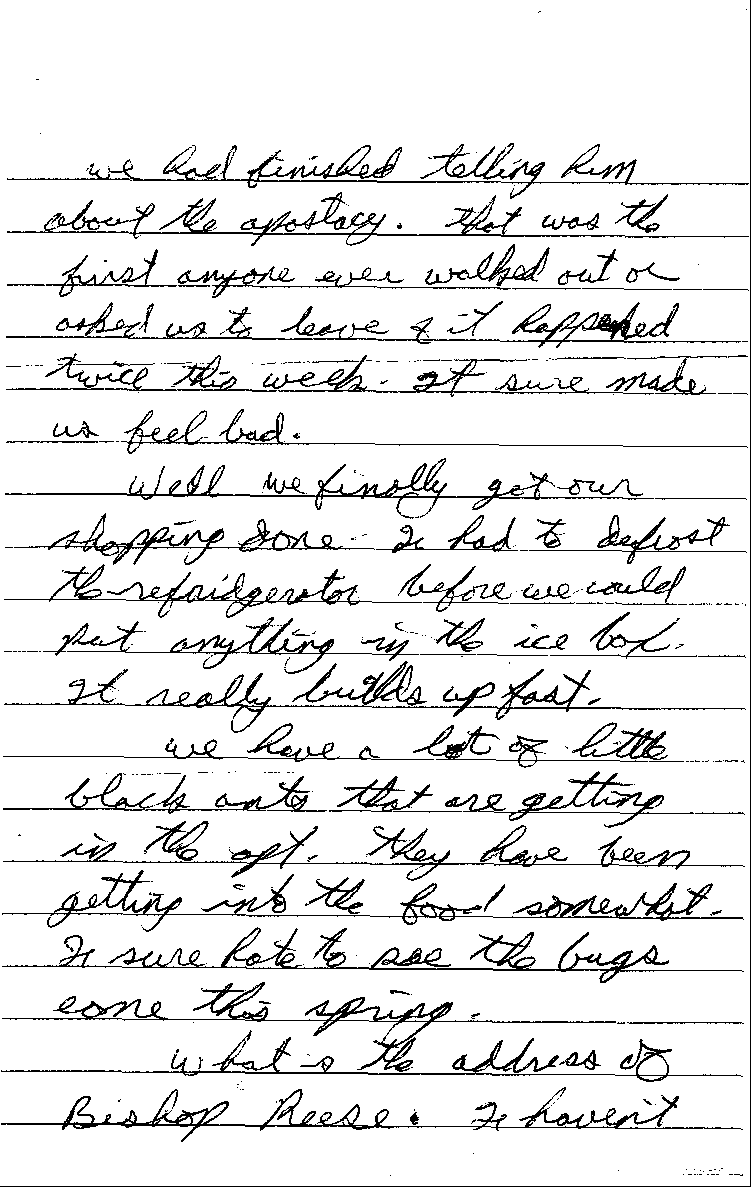 we had finished telling him
about the apostacy. that was the
first anyone ever walked out or
asked us to leave & it happened
twice this week. It sure made
us feel bad.
Well we finally got our
shopping done. I had to defrost
the refridgerator before we could
put anything in the ice box.
It really builds up fast.
we have a lot of little
black ants that are getting
in the apt. they have been
getting into the food somewhat.
I sure hate to see the bugs
come this spring.
What's the address of
Bishop Reese. I haven't